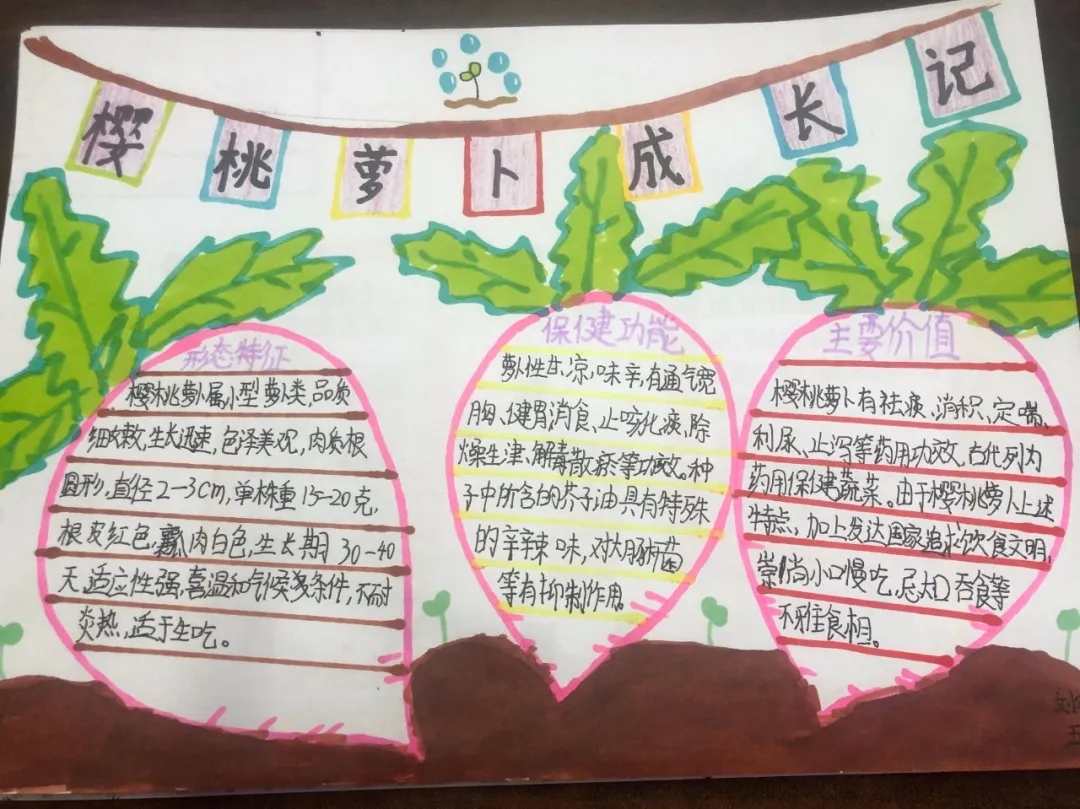 樱桃萝卜成长记
形态特征
樱桃萝卜属小型萝卜类,品质
细嫩,生长迅速,色泽美观,肉质根
圆形,直径2-3cm,单株重15-20克,
根皮红色,瓤肉白色,生长期30-40
天,适应性强,喜温和气候条件,不耐
炎热,适于生吃。
保健功能
萝卜性甘凉,味辛,有通气宽
胸、健胃消食、止咳化痰、除
燥生津、解毒散瘀等功效。种
子中所含的芥子油具有特殊
的辛辣味,对大肠杆菌
等有抑制作用。
主要价值
樱桃萝卜有祛痰、消积、定喘、
利尿、止泻等药用功效,古代列为
药用保健蔬菜。由于樱桃萝卜上述
特点,加上发达国家追求饮食文明,
崇尚小口慢吃,忌大口吞食等
不雅食相。